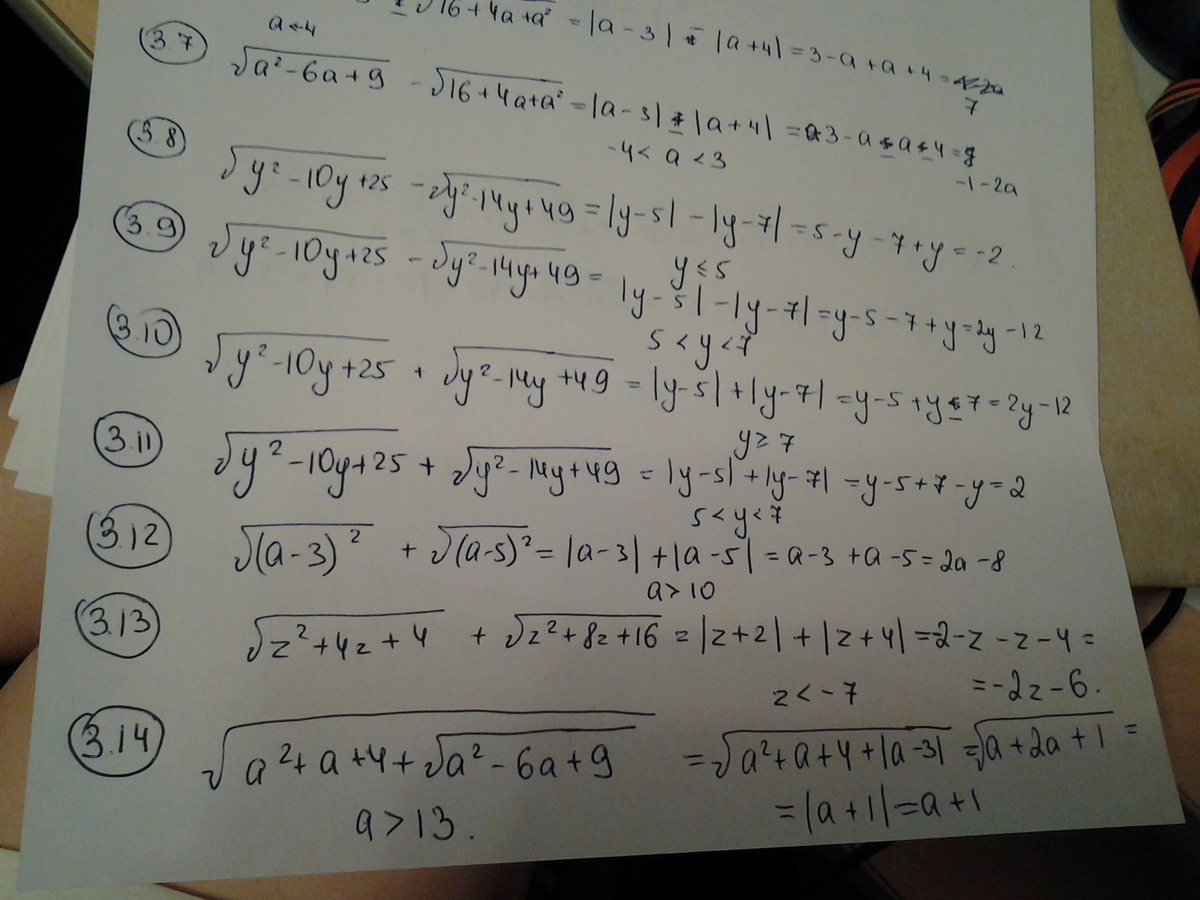 √16+4a+a² = |a-3| - |a+4| = 3-a+a+4 =
7
a<-4
3.7 √a²-6a+9 - √16+4a+a² = |a-3| - |a+4| = 3-a-a-4 =
-4< a <3
-1-2a
3.8 √y²-10y+25 - √y²-14y+49 = |y-5| - |y-7| = 5-y-7+y = -2.
y≤5
3.9 √y²-10y+25 - √y²-14y+49 = |y-5| - |y-7| = y-5-7+y = 2y-12
5 < y < 7
3.10 √y²-10y+25 + √y²-14y+49 = |y-5| + |y-7| = y-5+y-7 = 2y-12
y≥7
3.11 √y²-10y+25 + √y²-14y+49 = |y-5| + |y-7| = y-5+7-y = 2
5 < y < 7
3.12 √(a-3)² + √(a-5)² = |a-3| + |a-5| = a-3+a-5 = 2a-8
a>10
3.13 √z²+4z+4 + √z²+8z+16 = |z+2| + |z+4| = -2-z-z-4 =
z<-7 = -2z-6.
3.14 √a²+a+4+√a²-6a+9 = √a²+a+4+|a-3| = √a+2a+1 =
a>13. = |a+1| = a+1